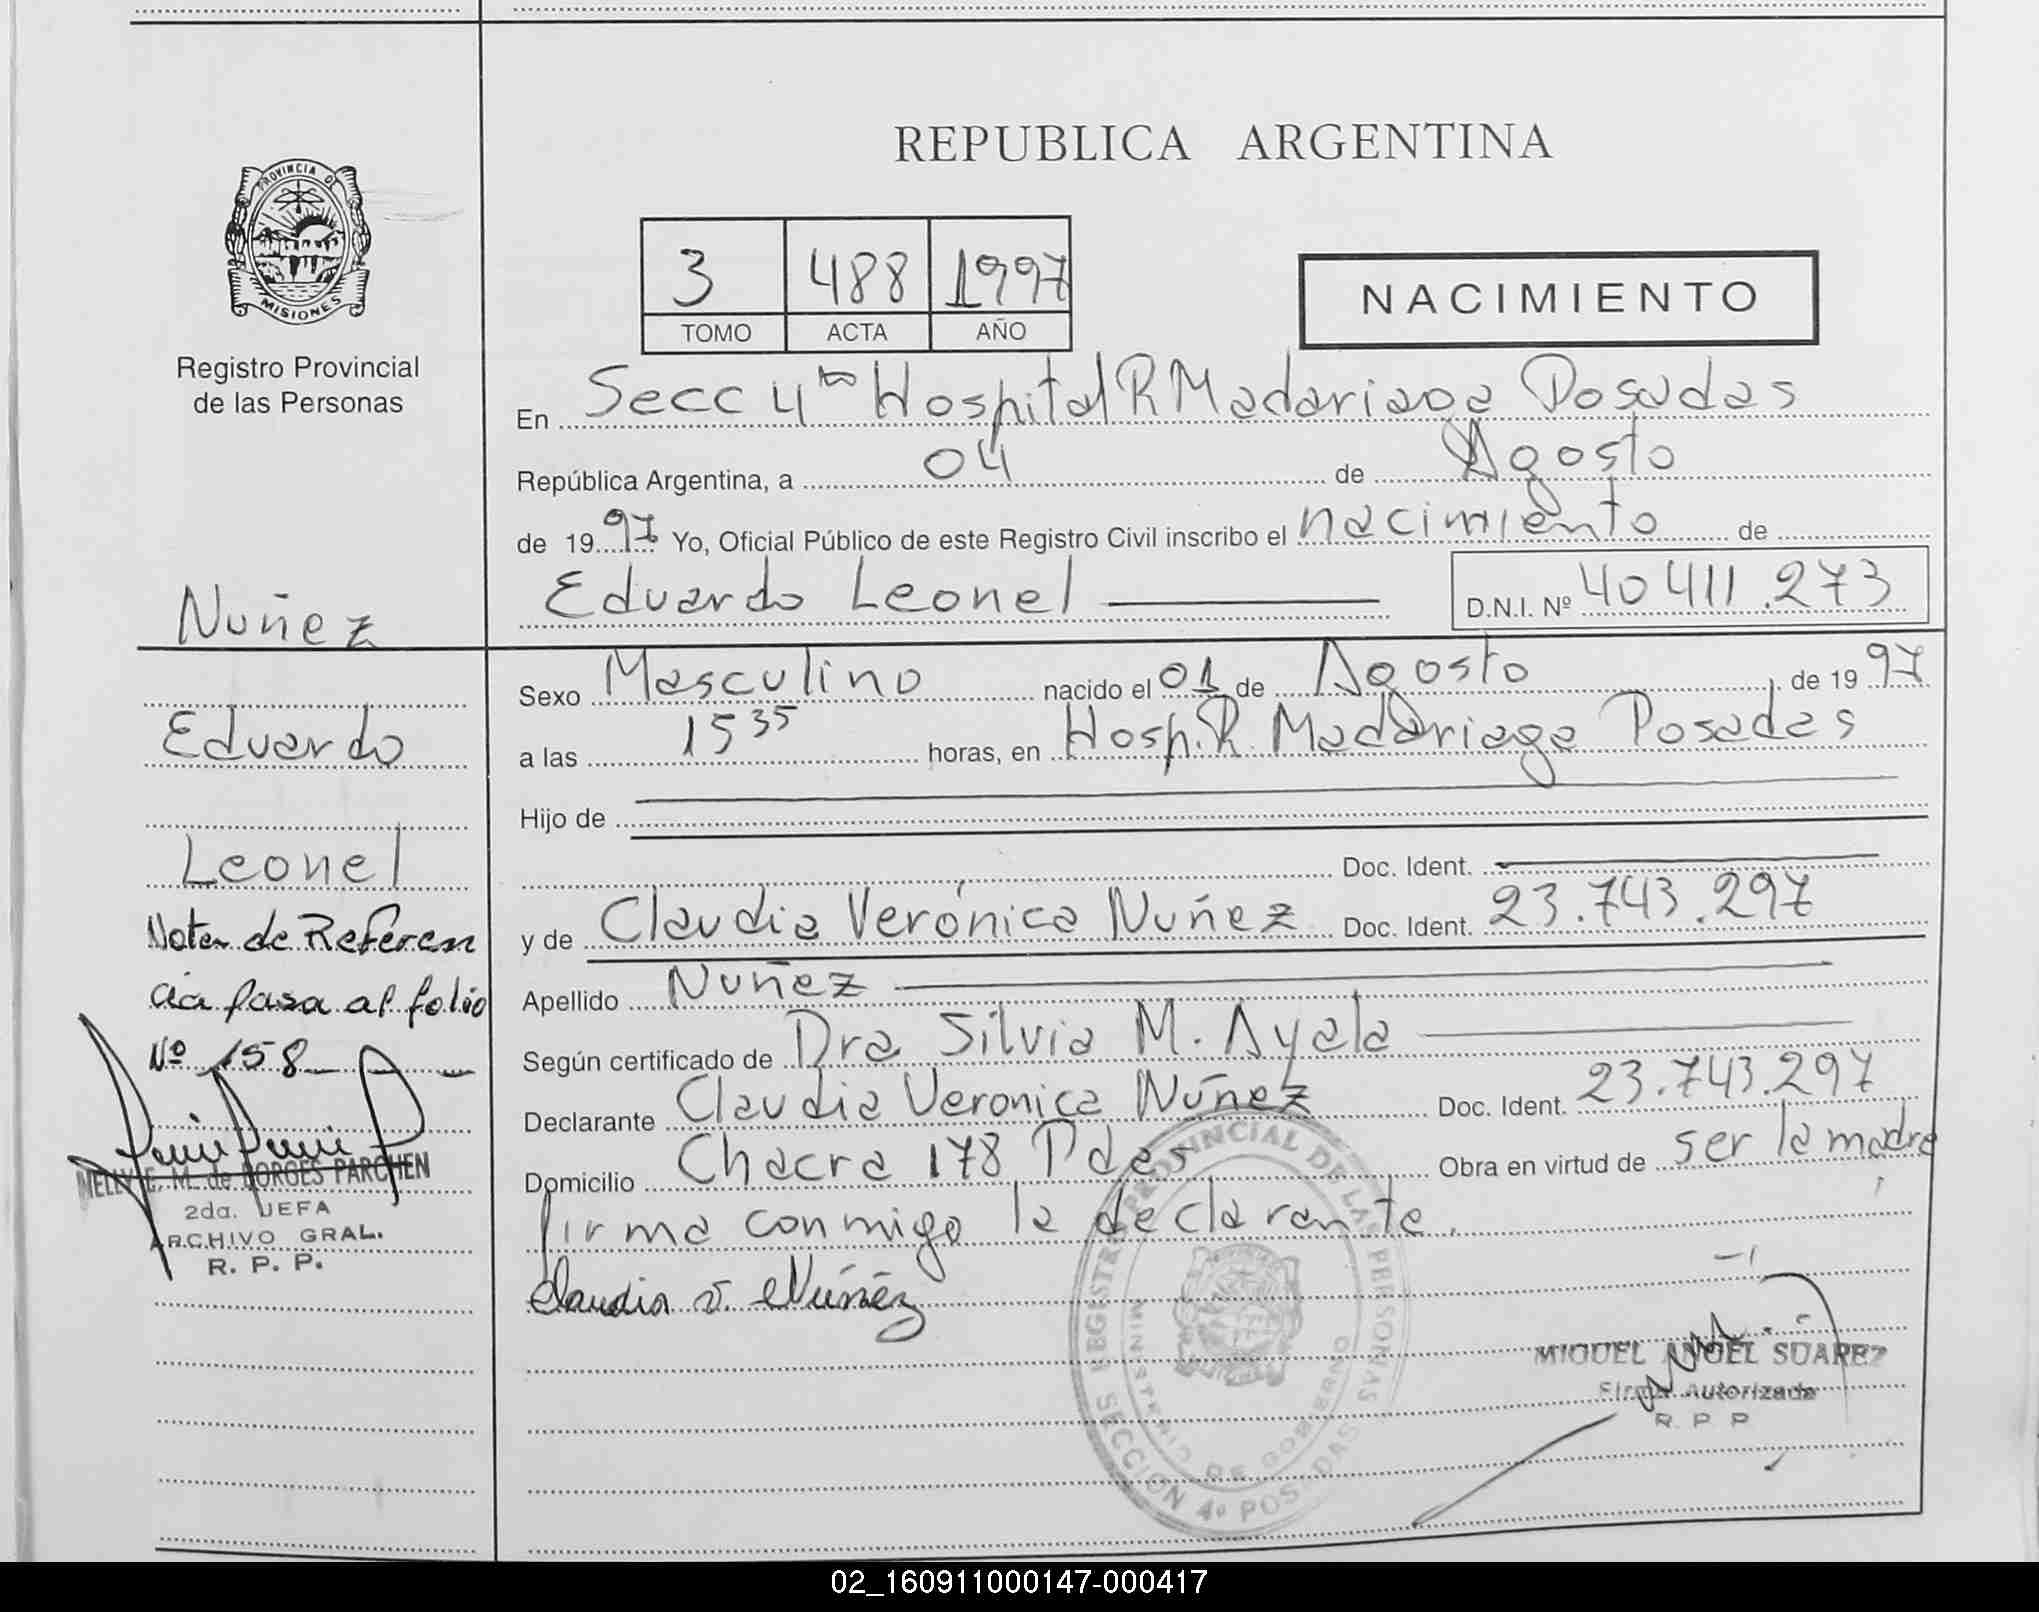 REPUBLICA ARGENTINA
PROVINCIA DE
MISIONES
Registro Provincial
de las Personas
3 488 1997
TOMO ACTA AÑO
NACIMIENTO
En Secc 4ta Hospital R Madariaga Posadas
República Argentina, a 04 de Agosto
de 1997 Yo, Oficial Público de este Registro Civil inscribo el nacimiento de
Eduardo Leonel D.N.I. Nº 40 411.273
Nuñez
Eduardo
Leonel
Nota de Referen
cia pasa al folio
Nº 158
NELLY E. M. de BORGES PARCHEN
2da. JEFA
ARCHIVO GRAL.
R. P. P.
Sexo Masculino nacido el 01 de Agosto de 1997
a las 15 35 horas, en Hosp. R. Madariaga Posadas
Hijo de
Doc. Ident.
y de Claudia Verónica Nuñez Doc. Ident. 23.743.297
Apellido Nuñez
Según certificado de Dra Silvia M. Ayala
Declarante Claudia Veronica Núñez Doc. Ident. 23.743.297
Domicilio Chacra 178 Pdas Obra en virtud de ser la madre
firma conmigo la declarante.
Claudia v. Núñez
REGISTRO PROVINCIAL DE LAS PERSONAS
MINISTERIO DE GOBIERNO
SECCION 4º POSADAS
MIGUEL ANGEL SUAREZ
Firma Autorizada
R. P. P
02_160911000147-000417